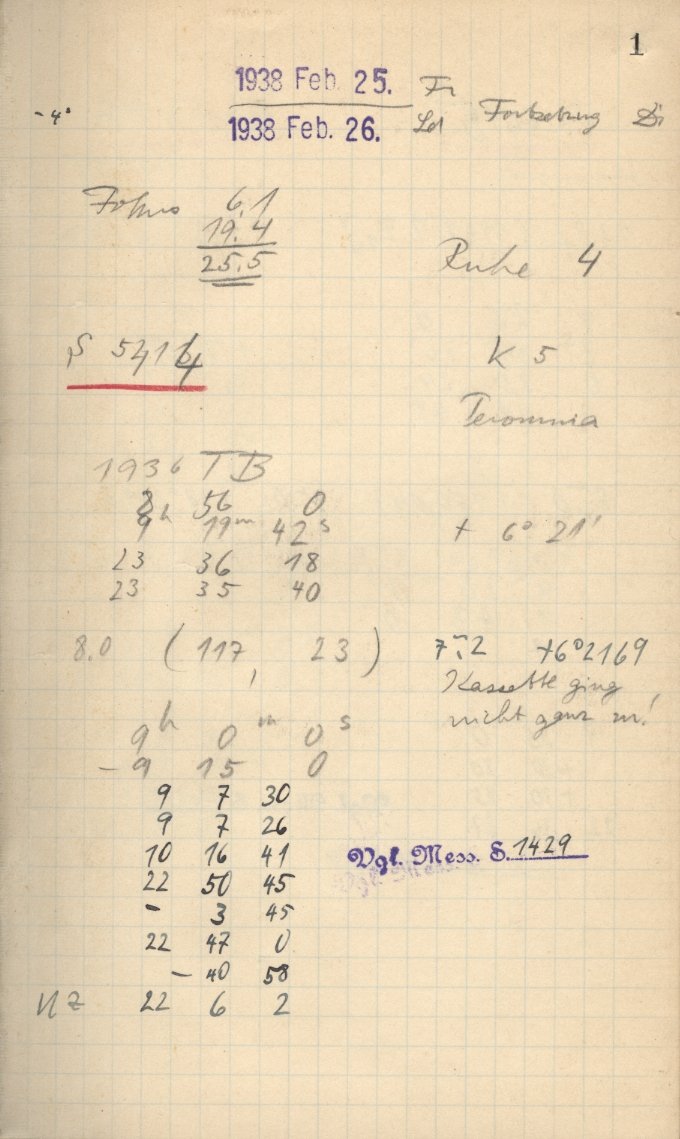 1
1938 Feb. 25. Fr
- 4°
1938 Feb. 26. Fortsetzung
Fokus 6,1
19.4
25.5
Ruhe 4
K 5
1936 TB
8 56 0
9h 19m 42s + 6° 21'
23 36 18
23 35 40
8.0 ( 117, 23 ) +6°2169
Kassette ging
nicht ganz zu!
9h 0m 0s
- 9 15 0
9 7 30
9 7 26
10 16 41 Vgl. Mess. S. 1429
22 50 45
- 3 45
22 47 0
- 40 58
NZ 22 6 2